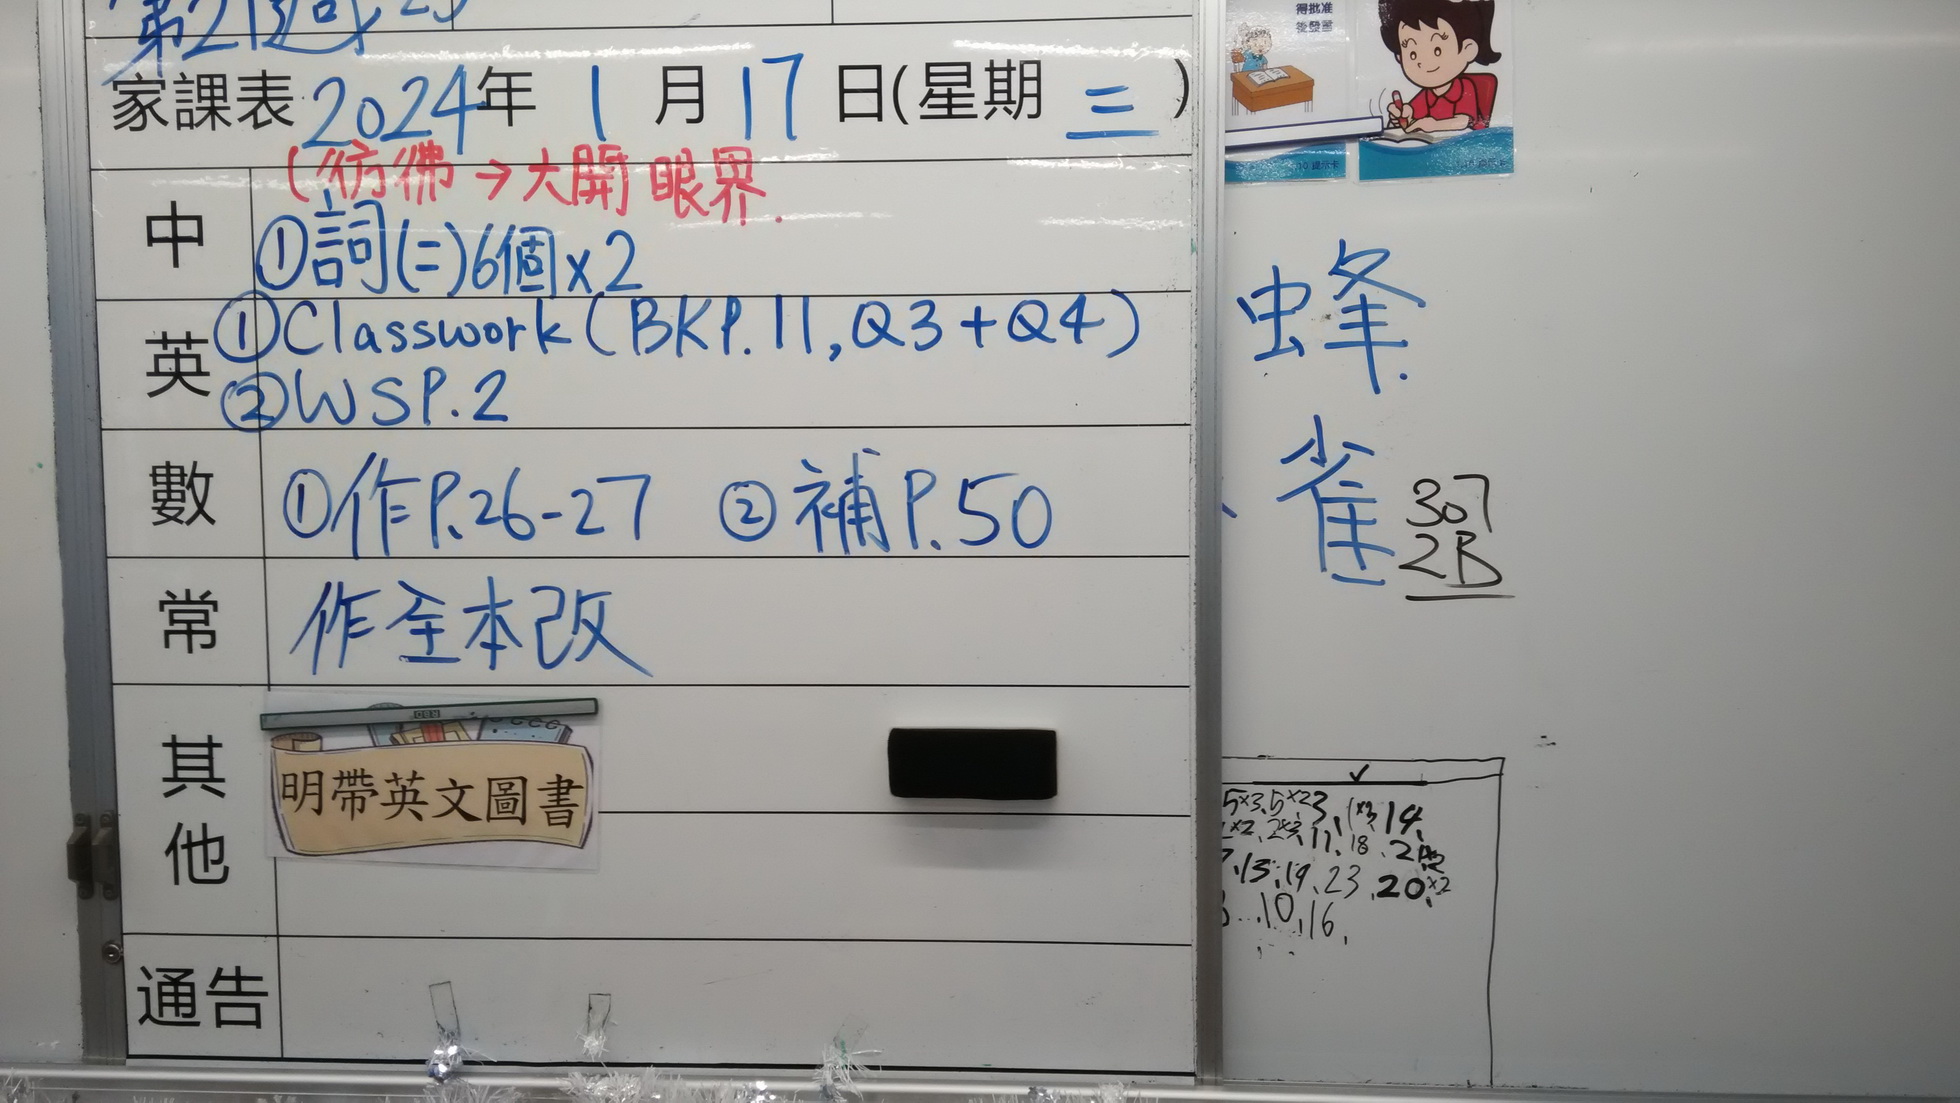 第21週
家課表 2024年 1 月 17 日(星期 三 )
(彷彿→大開眼界.
中 ①詞(二)6個x2
英 ①Classwork(BKP.11,Q3+Q4)
②WSP.2
數 ①作P.26-27 ②補P.50
常 作全本改
其他 明帶英文圖書
通告
得批准
後發言
10 提示卡
蜂.
雀
307
2B
✓
5x3、5x2 3、1x3、14、
x2、2x3、11、18、2
、13、19、23、20x2
10、16、